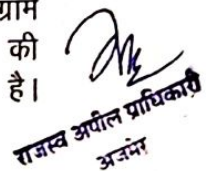 ग्राम
की
है।
राजस्व अपील प्राधिकारी
अजमेर